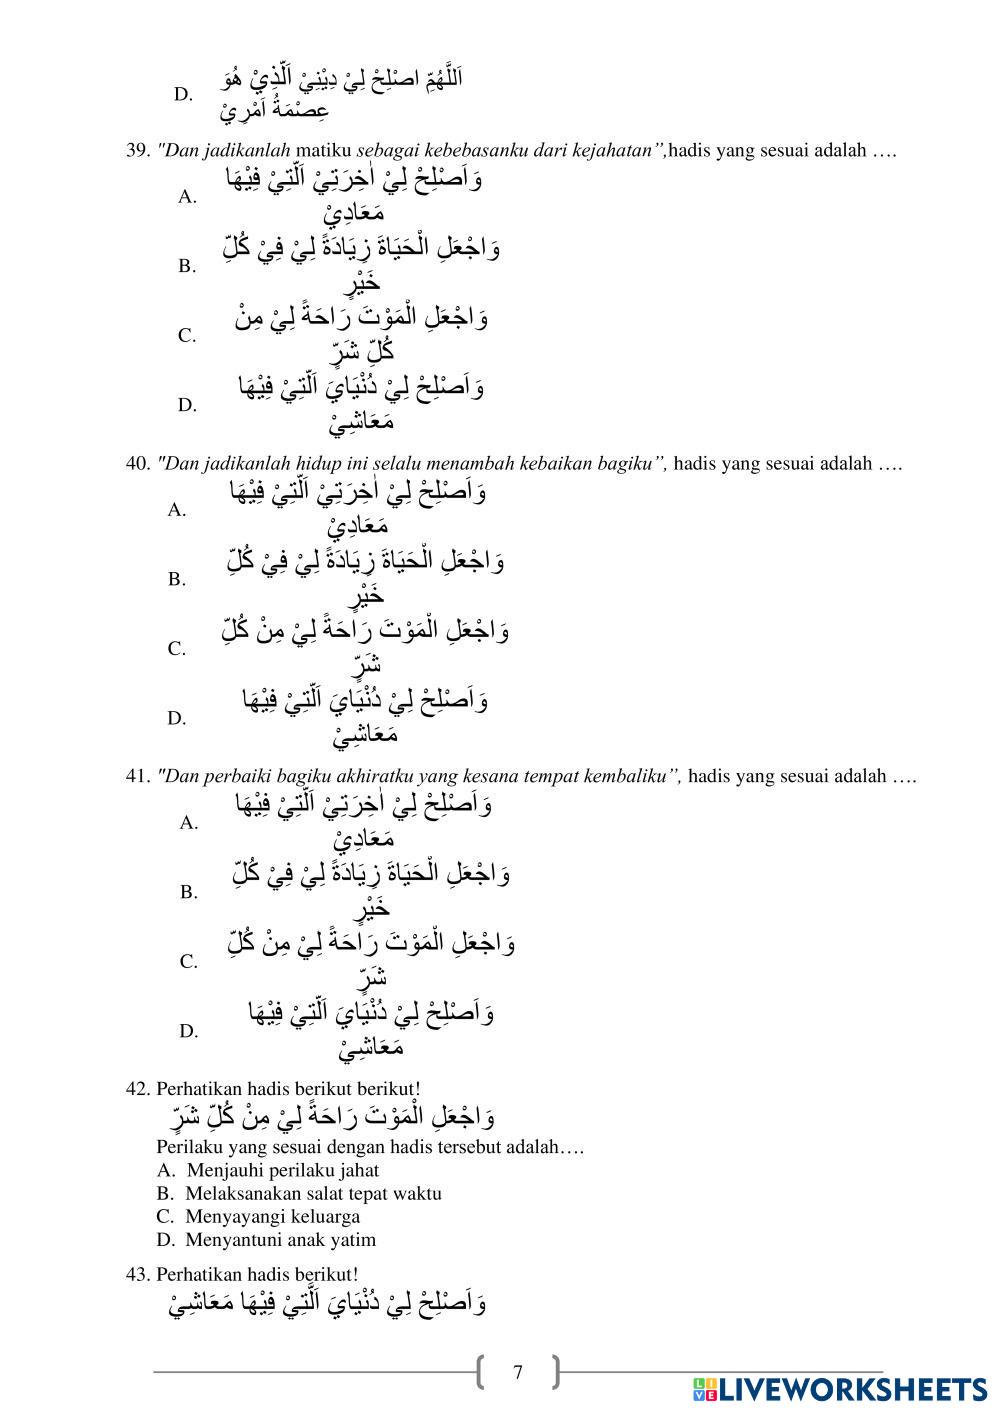 D. اَللَّهُمّ اصْلِحْ لِيْ دِيْنِيْ اَلَّذِيْ هُوَ
عِصْمَةُ اَمْرِيْ
39. "Dan jadikanlah matiku sebagai kebebasanku dari kejahatan”,hadis yang sesuai adalah ….
A. وَاَصْلِحْ لِيْ اٰخِرَتِيْ اَلَّتِيْ فِيْهَا
مَعَادِيْ
B. وَاجْعَلِ الْحَيَاةَ زِيَادَةً لِيْ فِيْ كُلِّ
خَيْرٍ
C. وَاجْعَلِ الْمَوْتَ رَاحَةً لِيْ مِنْ
كُلِّ شَرٍّ
D. وَاَصْلِحْ لِيْ دُنْيَايَ اَلَّتِيْ فِيْهَا
مَعَاشِيْ
40. "Dan jadikanlah hidup ini selalu menambah kebaikan bagiku”, hadis yang sesuai adalah ….
A. وَاَصْلِحْ لِيْ اٰخِرَتِيْ اَلَّتِيْ فِيْهَا
مَعَادِيْ
B. وَاجْعَلِ الْحَيَاةَ زِيَادَةً لِيْ فِيْ كُلِّ
خَيْرٍ
C. وَاجْعَلِ الْمَوْتَ رَاحَةً لِيْ مِنْ كُلِّ
شَرٍّ
D. وَاَصْلِحْ لِيْ دُنْيَايَ اَلَّتِيْ فِيْهَا
مَعَاشِيْ
41. "Dan perbaiki bagiku akhiratku yang kesana tempat kembaliku”, hadis yang sesuai adalah ….
A. وَاَصْلِحْ لِيْ اٰخِرَتِيْ اَلَّتِيْ فِيْهَا
مَعَادِيْ
B. وَاجْعَلِ الْحَيَاةَ زِيَادَةً لِيْ فِيْ كُلِّ
خَيْرٍ
C. وَاجْعَلِ الْمَوْتَ رَاحَةً لِيْ مِنْ كُلِّ
شَرٍّ
D. وَاَصْلِحْ لِيْ دُنْيَايَ اَلَّتِيْ فِيْهَا
مَعَاشِيْ
42. Perhatikan hadis berikut berikut!
وَاجْعَلِ الْمَوْتَ رَاحَةً لِيْ مِنْ كُلِّ شَرٍّ
Perilaku yang sesuai dengan hadis tersebut adalah….
A. Menjauhi perilaku jahat
B. Melaksanakan salat tepat waktu
C. Menyayangi keluarga
D. Menyantuni anak yatim
43. Perhatikan hadis berikut!
وَاَصْلِحْ لِيْ دُنْيَايَ اَلَّتِيْ فِيْهَا مَعَاشِيْ
7
LIVE LIVEWORKSHEETS